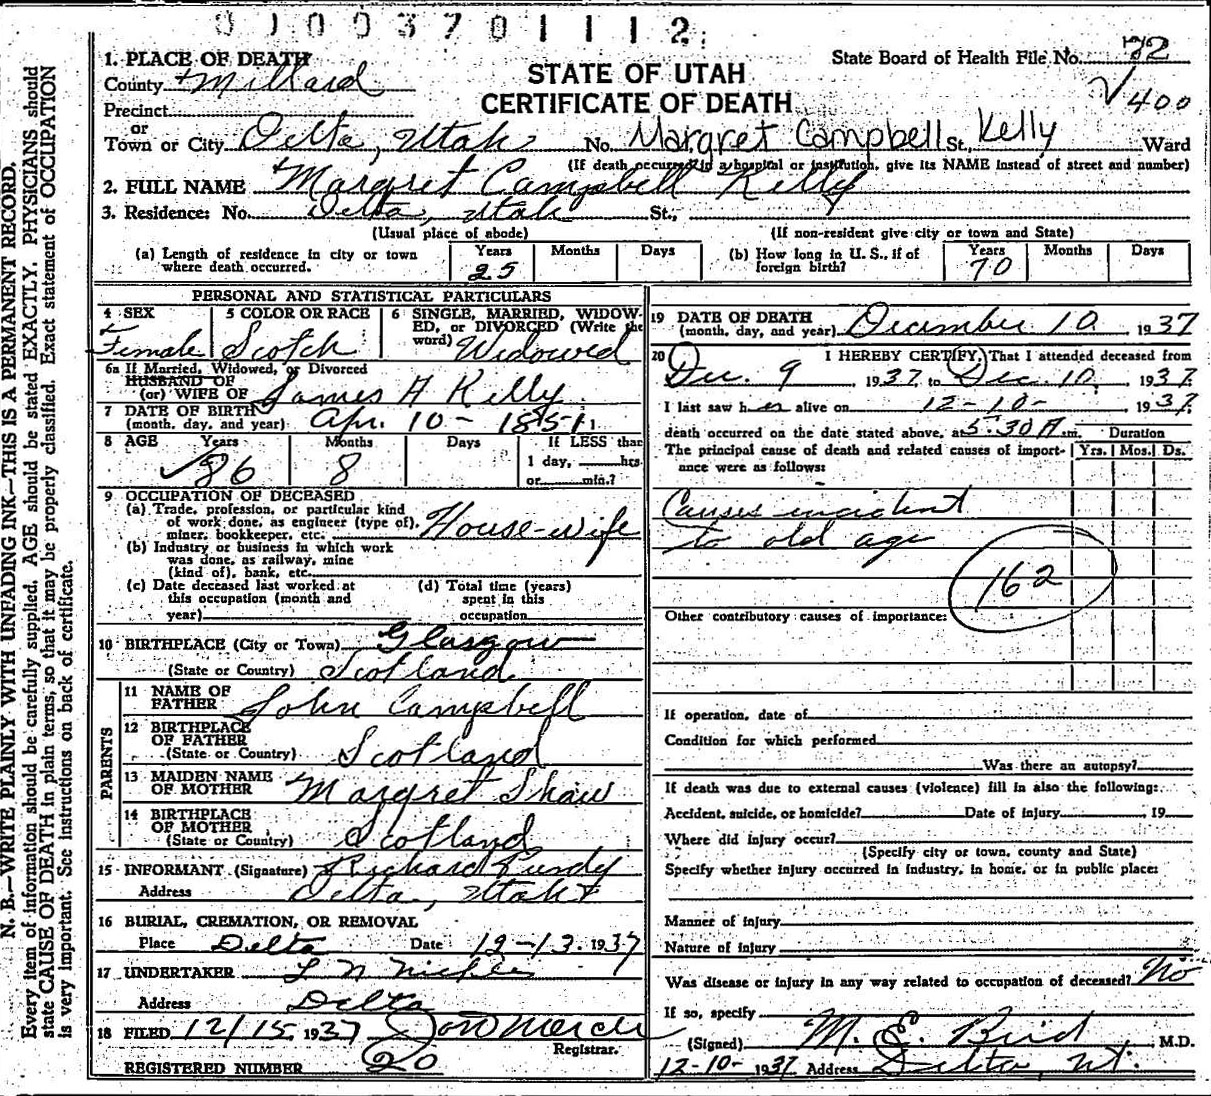 0 1 0 0 3 7 0 1 1 1 2
1. PLACE OF DEATH
County Millard
Precinct
or
Town or City Delta, Utah No. Margret Campbell St., Kelly Ward
(If death occurred in a hospital or institution, give its NAME instead of street and number)
STATE OF UTAH
CERTIFICATE OF DEATH
State Board of Health File No. 72
400
2. FULL NAME Margret Campbell Kelly
3. Residence: No. Delta, Utah St.,
(Usual place of abode) (If non-resident give city or town and State)
(a) Length of residence in city or town where death occurred. Years 25 Months Days
(b) How long in U. S., if of foreign birth? Years 70 Months Days
PERSONAL AND STATISTICAL PARTICULARS
4 SEX Female
5 COLOR OR RACE Scotch
6 SINGLE, MARRIED, WIDOWED, or DIVORCED (Write the word) Widowed
6a If Married, Widowed, or Divorced
HUSBAND OF
(or) WIFE OF James A Kelly
7 DATE OF BIRTH
(month, day, and year) Apr. 10 - 1851
8 AGE Years 86 Months 8 Days If LESS than
1 day, hrs
or min.?
9 OCCUPATION OF DECEASED
(a) Trade, profession, or particular kind
of work done, as engineer (type of),
miner, bookkeeper, etc. House-wife
(b) Industry or business in which work
was done, as railway, mine
(kind of), bank, etc.
(c) Date deceased last worked at
this occupation (month and
year)
(d) Total time (years)
spent in this
occupation
10 BIRTHPLACE (City or Town) Glasgow
(State or Country) Scotland
PARENTS
11 NAME OF
FATHER John Campbell
12 BIRTHPLACE
OF FATHER
(State or Country) Scotland
13 MAIDEN NAME
OF MOTHER Margret Shaw
14 BIRTHPLACE
OF MOTHER
(State or Country) Scotland
15 INFORMANT (Signature) Richard Purdy
Address Delta, Utah
16 BURIAL, CREMATION, OR REMOVAL
Place Delta Date 12-13. 1937
17 UNDERTAKER L N
Address Delta
18 FILED 12/15. 1937
Registrar.
REGISTERED NUMBER 20
19 DATE OF DEATH
(month, day, and year) December 10 1937
20 I HEREBY CERTIFY, That I attended deceased from
Dec. 9 1937 to Dec. 10, 1937
I last saw her alive on 12-10- 1937
death occurred on the date stated above, at 5:30 A m. Duration
The principal cause of death and related causes of importance were as follows: Yrs. Mos. Ds.
Causes incident
to old age
162
Other contributory causes of importance:
If operation, date of
Condition for which performed
Was there an autopsy?
If death was due to external causes (violence) fill in also the following:
Accident, suicide, or homicide? Date of injury 19
Where did injury occur?
(Specify city or town, county and State)
Specify whether injury occurred in industry, in home, or in public place:
Manner of injury
Nature of injury
Was disease or injury in any way related to occupation of deceased? No
If so, specify
(Signed) M. E. Bird, M.D.
12-10- 1937 Address Delta, Ut.
N. B.—WRITE PLAINLY WITH UNFADING INK—THIS IS A PERMANENT RECORD.
Every item of information should be carefully supplied. AGE should be stated EXACTLY. PHYSICIANS should
state CAUSE OF DEATH in plain terms, so that it may be properly classified. Exact statement of OCCUPATION
is very important. See instructions on back of certificate.